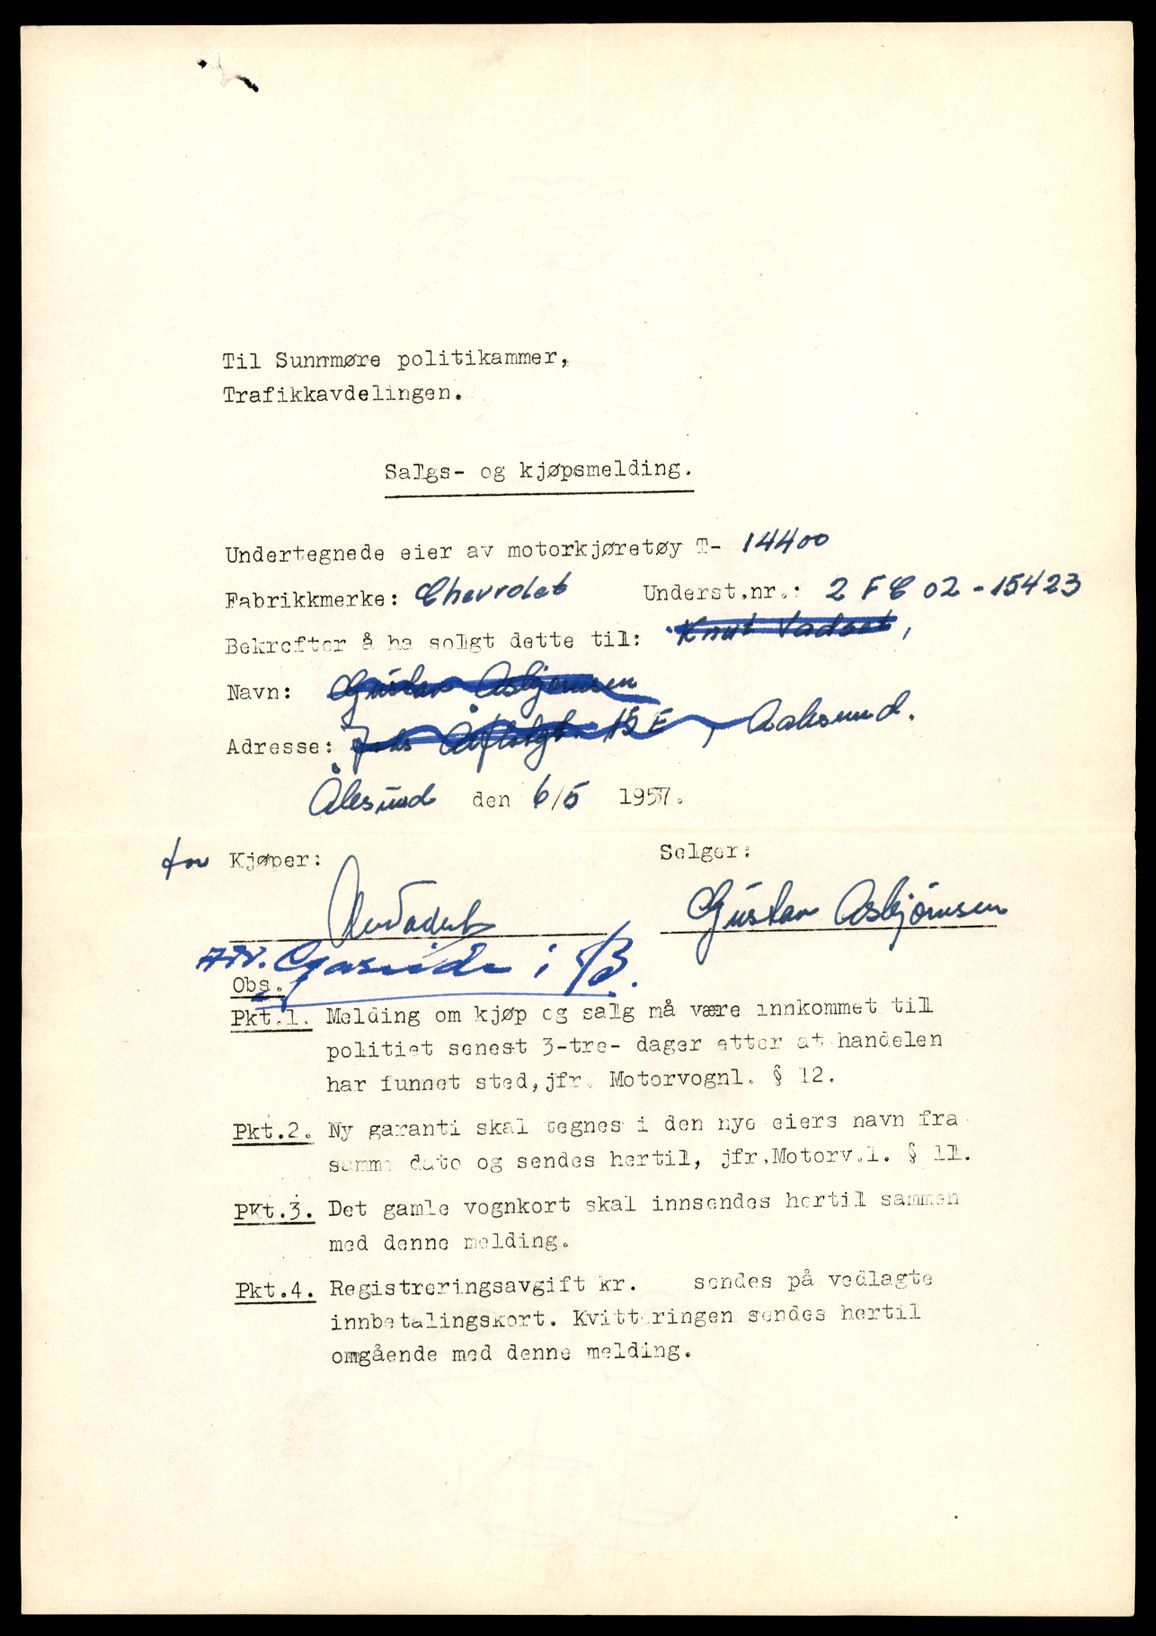 Til Sunnmøre politikammer,
Trafikkavdelingen.
Salgs- og kjøpsmelding.
Undertegnede eier av motorkjøretøy T- 14400
Fabrikkmerke: Chevrolet Underst.nr.: 2 F E 02 - 15423
Bekrefter å ha solgt dette til: Knut Vadset,
Navn: Gustav Asbjørnsen
Adresse: 15 E, Aalesund.
Ålesund den 6/5 1957.
for Kjøper: Selger:
Gustav Asbjørnsen
i
Obs.
Pkt.1. Melding om kjøp og salg må være innkommet til
politiet senest 3-tre- dager etter at handelen
har funnet sted, jfr. Motorvognl. § 12.
Pkt.2. Ny garanti skal tegnes i den nye eiers navn fra
samme dato og sendes hertil, jfr.Motorv.l. § 11.
Pkt.3. Det gamle vognkort skal innsendes hertil sammen
med denne melding.
Pkt.4. Registreringsavgift kr. sendes på vedlagte
innbetalingskort. Kvitteringen sendes hertil
omgående med denne melding.